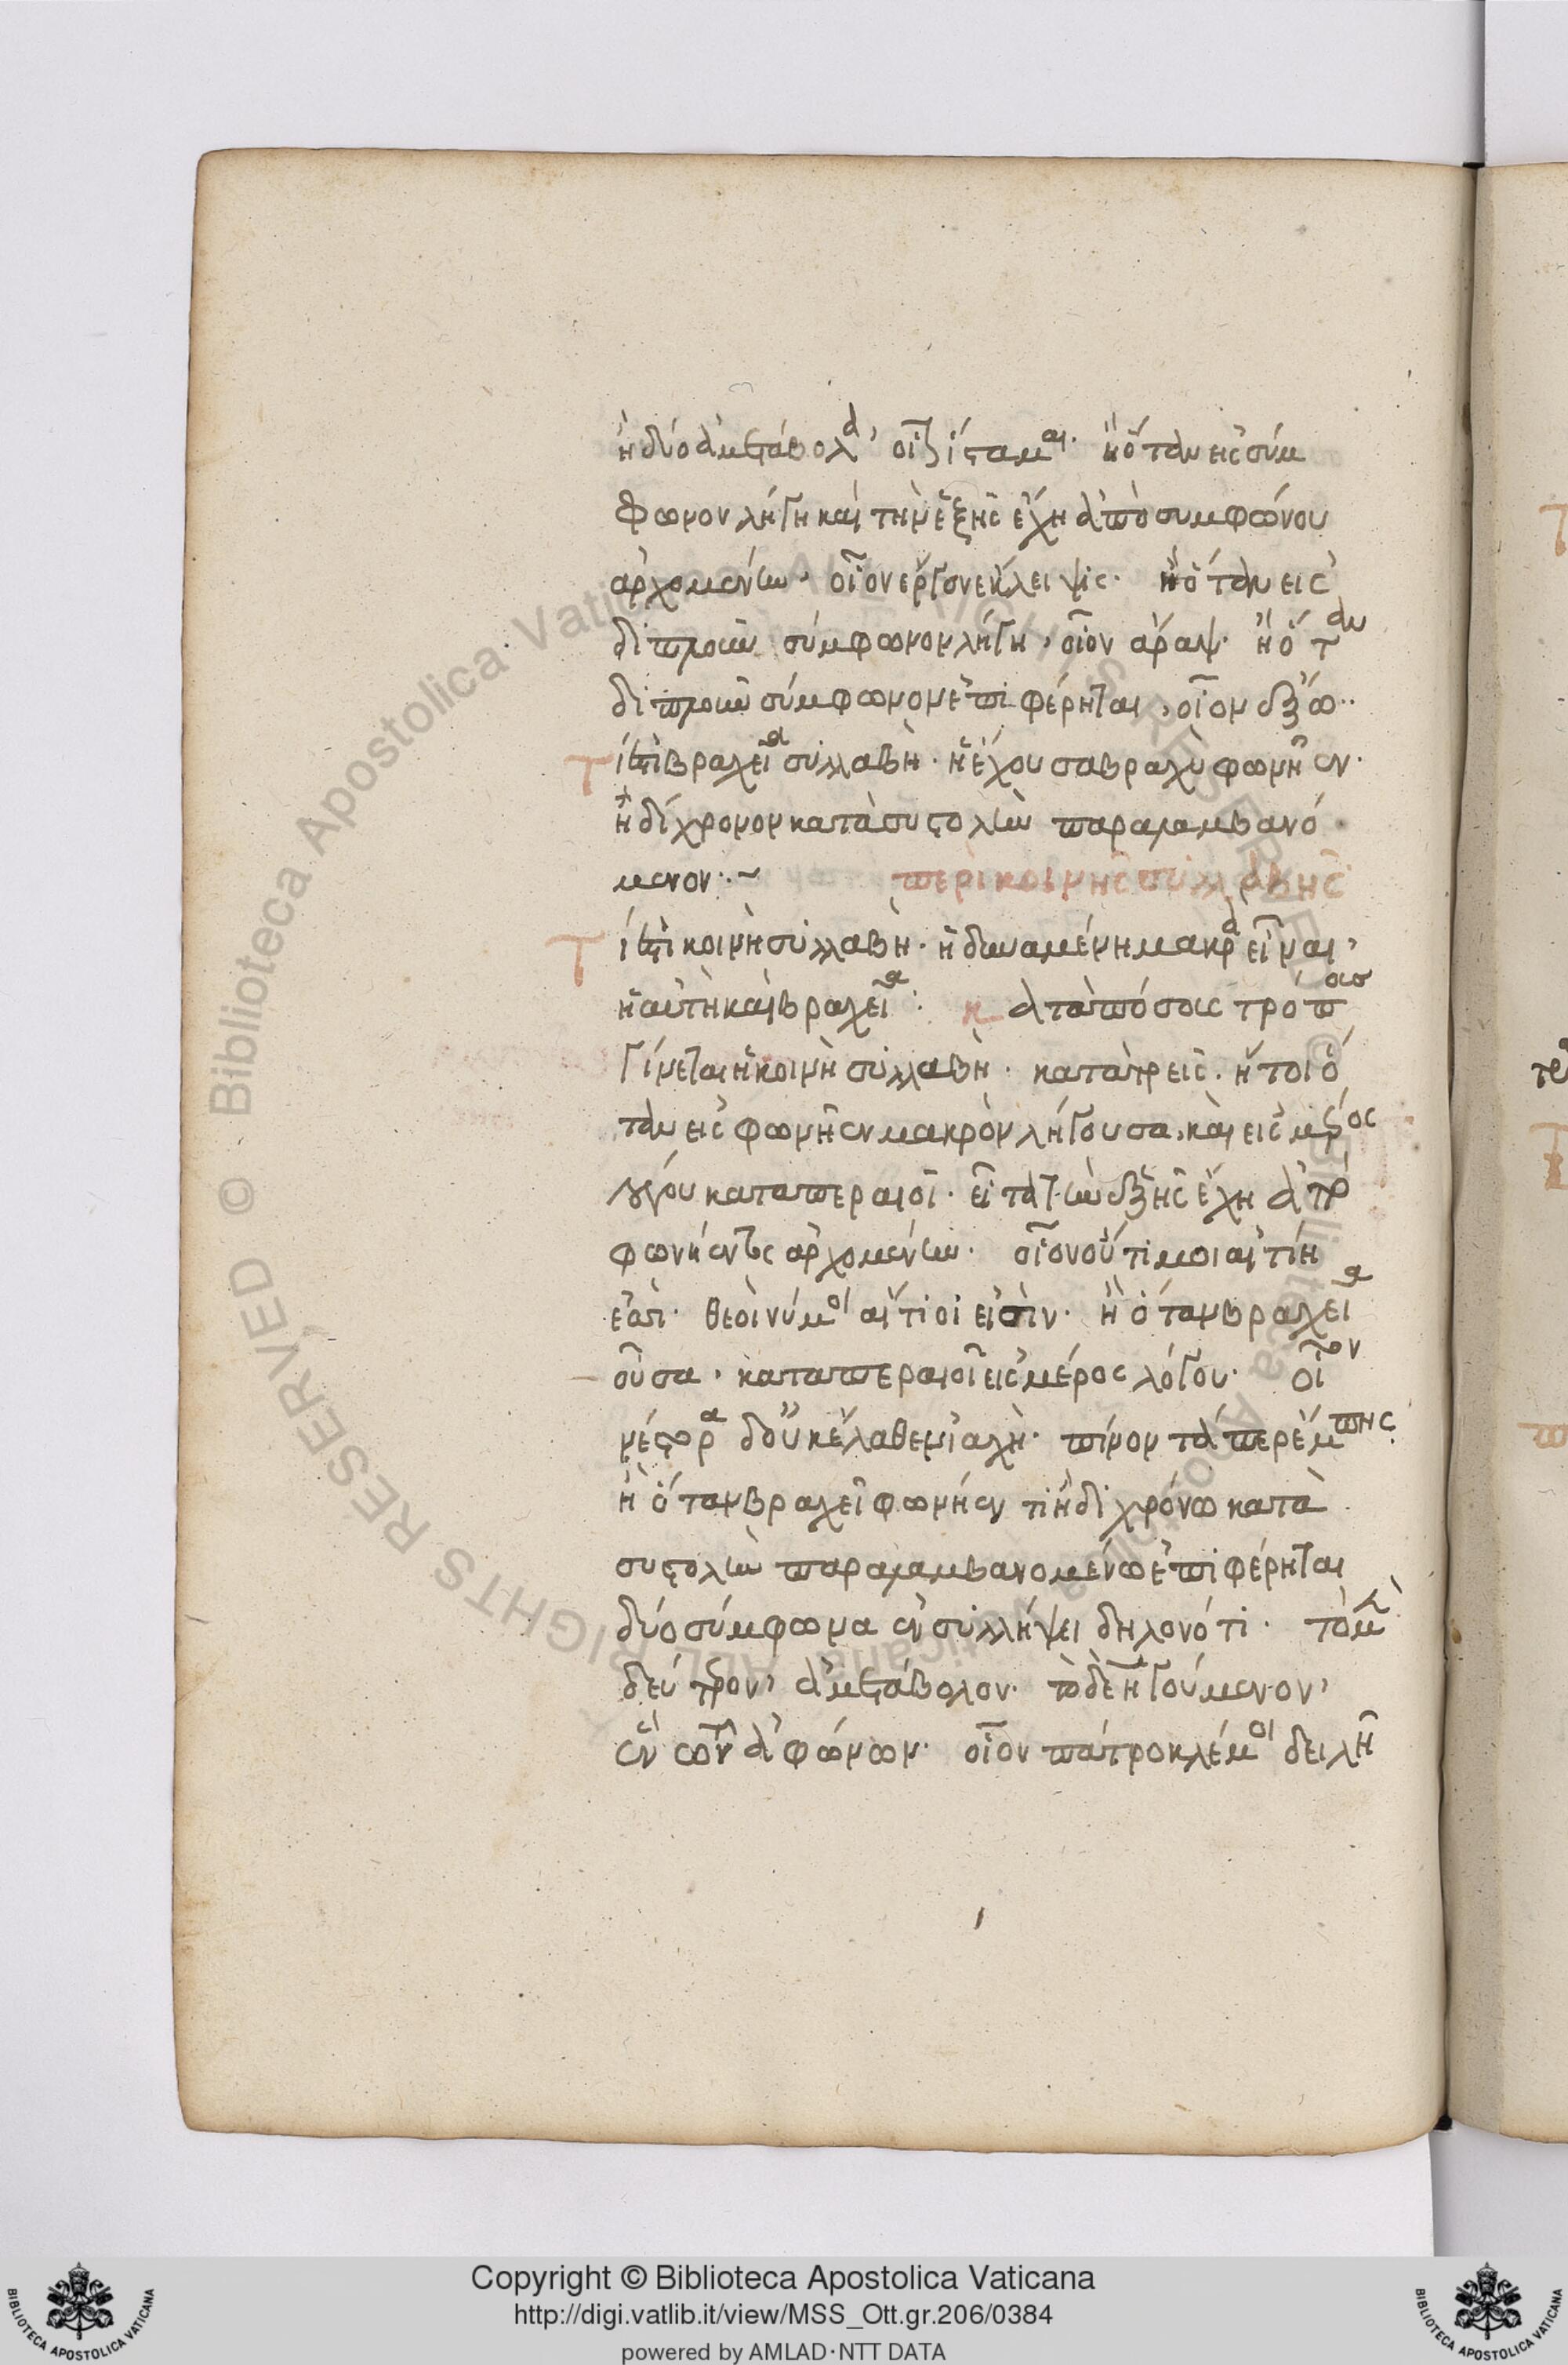 ἢ δύο ἀμετάβολα, οἷ ἵσταμαι. ἢ ὅταν εἰς σύμ
φωνον λήγη καὶ τὴν ἑξῆς ἔχη ἀπὸ συμφώνου
ἀρχομένην. οἷον ἔργον ἔκλειψις. ἢ ὅταν εἰς
διπλοῦν σύμφωνον λήγη, οἷον ἄραψ. ἢ ὅταν
διπλοῦν σύμφωνον ἐπιφέρηται, οἷον ἔξω..
Τί ἐστι βραχεῖα συλλαβὴ. ἡ ἔχουσα βραχὺ φωνῆεν.
ἢ δίχρονον κατὰ συστολὴν παραλαμβανό
μενον :~ περὶ κοινῆς συλλαβῆς
Τί ἐστι κοινὴ συλλαβὴ. ἡ δυναμένη μακρὰ εἶναι,
ἡ αὐτὴ καὶ βραχεῖα : κατὰ πόσους τρόπους
γίνεται ἡ κοινὴ συλλαβὴ. κατὰ τρεῖς. ἤτοι ὅ
ταν εἰς φωνῆεν μακρὸν λήγουσα, καὶ εἰς μέρος
λόγου καταπεραιοῖ. εἶτα τὴν ἑξῆς ἔχη ἀπὸ
φωνήεντος ἀρχομένην. οἷον οὔτι μοι αἰτίη
ἐσσὶ. θεοὶ νύ μοι αἴτιοι εἰσὶν. ἢ ὅταν βραχεῖα
οὖσα, καταπεραιοῖ εἰς μέρος λόγου. οἷον
νέστορα δ' οὐκ ἔλαθεν ἰαχὴ. πίνοντά περ ἔμπης.
ἢ ὅταν βραχεῖ φωνήεντι ἢ διχρόνω κατὰ
συστολὴν παραλαμβανομένω ἐπιφέρηται
δύο σύμφωνα ἐν συλλήψει δηλονότι. τὸ μὲν
δεύτερον, ἀμετάβολον. τὸ δὲ ἡγούμενον,
ἓν τῶν ἀφώνων. οἷον πάτροκλέ μοι δειλῆ
Copyright © Biblioteca Apostolica Vaticana
http://digi.vatlib.it/view/MSS_Ott.gr.206/0384
powered by AMLAD·NTT DATA